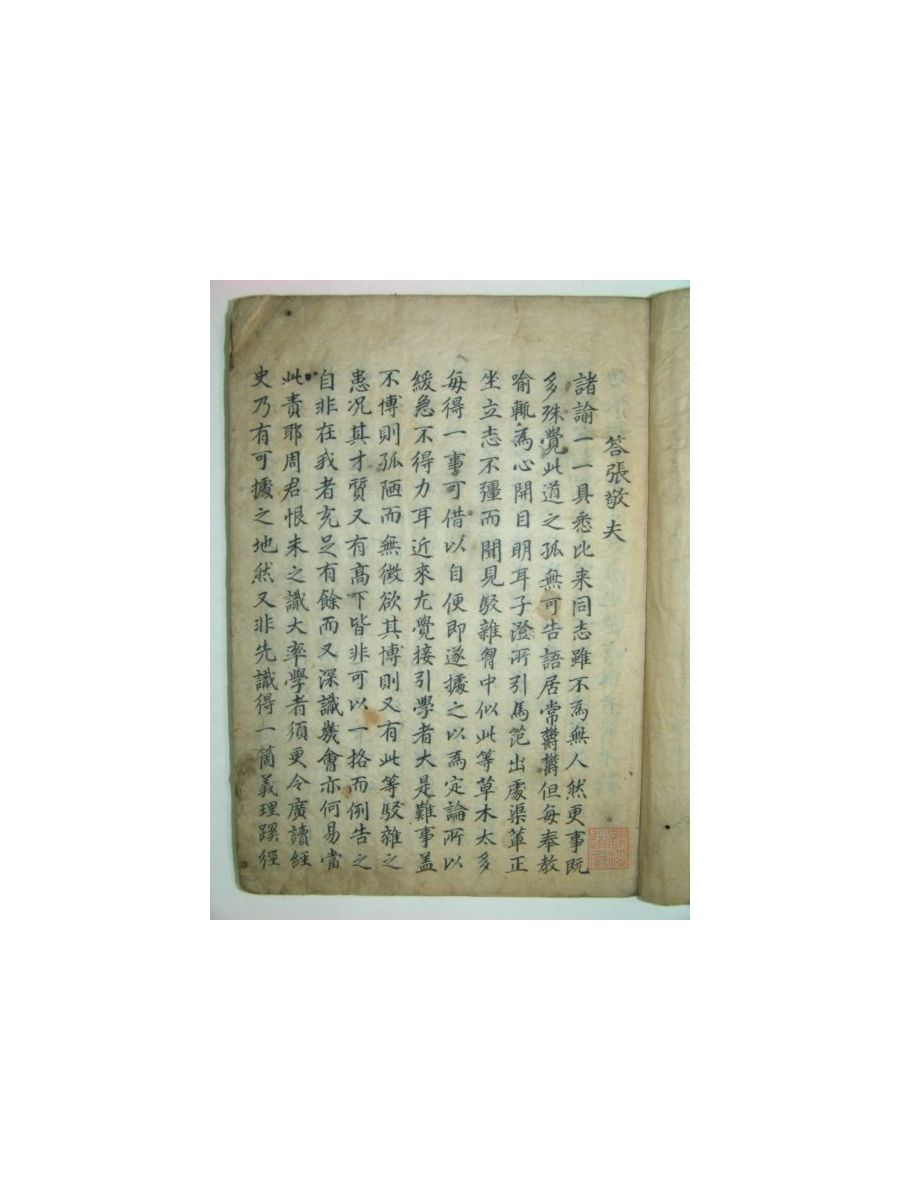 答張敬夫
諸諭一一具悉比来同志雖不爲無人然更事既
多殊覺此道之孤無可告語居常欝欝但每奉教
喻輒爲心開目明耳子澄所引馬范出處渠軰正
坐立志不彊而聞見駁雜胷中似此等草木太多
每得一事可借以自便即遂據之以爲定論所以
緩急不得力耳近來尤覺接引學者大是難事盖
不博則孤陋而無徵欲其博則又有此等駁雜之
患况其才質又有高下皆非可以一格而例告之
自非在我者充足有餘而又深識幾會亦何易當
此責耶周君恨未之識大率學者須更令廣讀經
史乃有可據之地然又非先識得一箇義理蹊徑